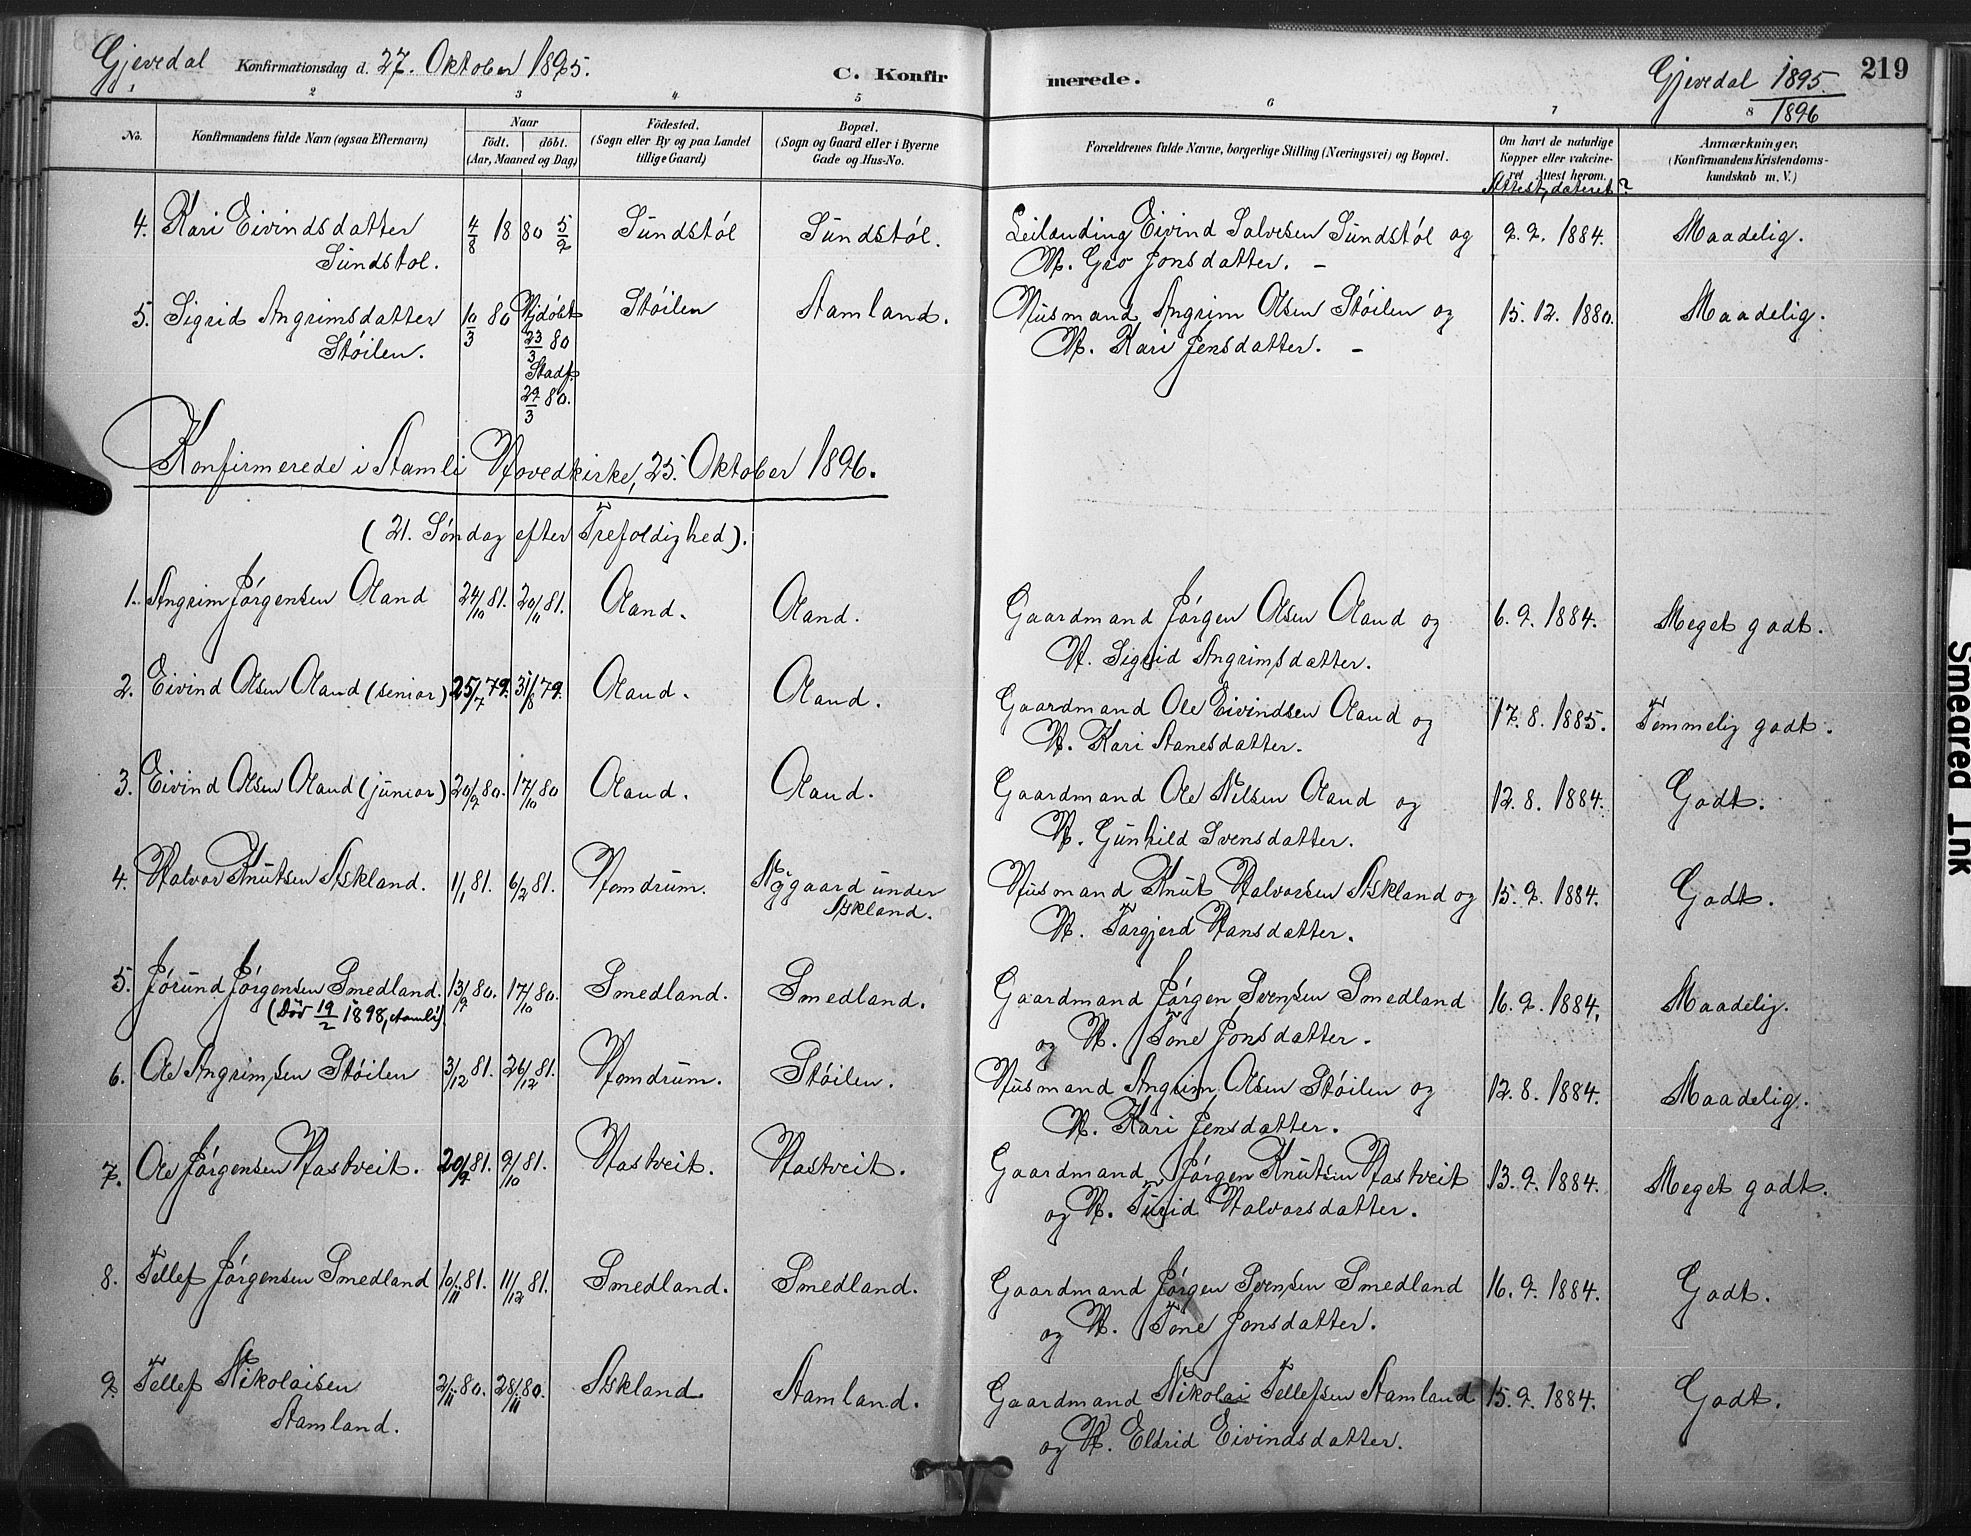 Gjevedal Konfirmationsdag d. 27. Oktober 1895. C. Konfirmerede. Gjevedal 1895. 219
1896
2 3 4 5 6 7 8
No. Konfirmandens fulde Navn (ogsaa Efternavn) Naar Födested. Bopæl. Forældrenes fulde Navne, borgerlige Stilling (Næringsvei) og Bopæl. Om havt de naturlige Anmærkninger,
födt. döbt. (Sogn eller By og paa Landet (Sogn og Gaard eller i Byerne Kopper eller vakcine- (Konfirmandens Kristendoms-
(Aar, Maaned og Dag) tillige Gaard) Gade og Hus-No. ret Attest herom. kundskab m. V.)
Attest, dateret?
4. Kari Eivindsdatter 4/8 18 80 5/2 Sundstøl Sundstøl. Leilænding Eivind Salvesen Sundstøl og 9. 9. 1884. Maadelig.
Sundstøl. H. Gro Jonsdatter. –
5. Sigrid Angrimsdatter 10/3 80 Hjdøbt Støilen Aamland. Husmand Angrim Olsen Støilen og 15. 12. 1880. Maadelig.
Støilen. 23/3 80 H. Kari Jensdatter. –
Stadf.
29/3 80.
Konfirmerede i Aamli Hovedkirke, 25. Oktober 1896.
(21. Søndag efter Trefoldighed).
1. Angrim Jørgensen Oland 24/10 81. 20/11 81. Oland. Oland. Gaardmand Jørgen Olsen Oland og 6. 9. 1884. Meget godt.
H. Sigrid Angrimsdatter.
2. Eivind Olsen Oland (senior) 25/7 79. 31/8 79. Oland. Oland. Gaardmand Ole Eivindsen Oland og 17. 8. 1885. Temmelig godt.
H. Kari Aanesdatter.
3. Eivind Olsen Oland (junior) 20/9 80. 17/10 80 Oland. Oland. Gaardmand Ole Nilsen Oland og 12. 8. 1884. Godt.
H. Gunhild Svensdatter.
4. Halvor Knutsen Askland. 1/1 81. 6/2 81. Homdrum. Nygaard under Husmand Knut Halvorsen Askland og 15. 9. 1884. Godt.
Askland. H. Targjerd Hansdatter.
5. Jørund Jørgensen Smedland. 13/9 80. 17/10 80. Smedland. Smedland. Gaardmand Jørgen Svensen Smedland 16. 9. 1884. Maadelig.
(Död 19/2 1898, Aamli) og H. Tone Jonsdatter.
6. Ole Angrimsen Støilen 3/12 81. 26/12 81. Homdrum. Støilen. Husmand Angrim Olsen Støilen og 12. 8. 1884. Maadelig.
H. Kari Jensdatter.
7. Ole Jørgensen Hastveit. 20/9 81. 9/10 81. Hastveit. Hastveit. Gaardmand Jørgen Knutsen Hastveit 13. 9. 1884. Meget godt.
og H. Turid Halvorsdatter.
8. Tellef Jørgensen Smedland 10/11 81. 11/12 81. Smedland. Smedland. Gaardmand Jørgen Svensen Smedland 16. 9. 1884. Godt.
og H. Tone Jonsdatter.
9. Tellef Nikolaisen 2/11 80. 28/11 80. Askland Aamland. Gaardmand Nikolai Tellefsen Aamland 15. 9. 1884. Godt.
Aamland. og H. Eldrid Eivindsdatter.
Smeared Ink